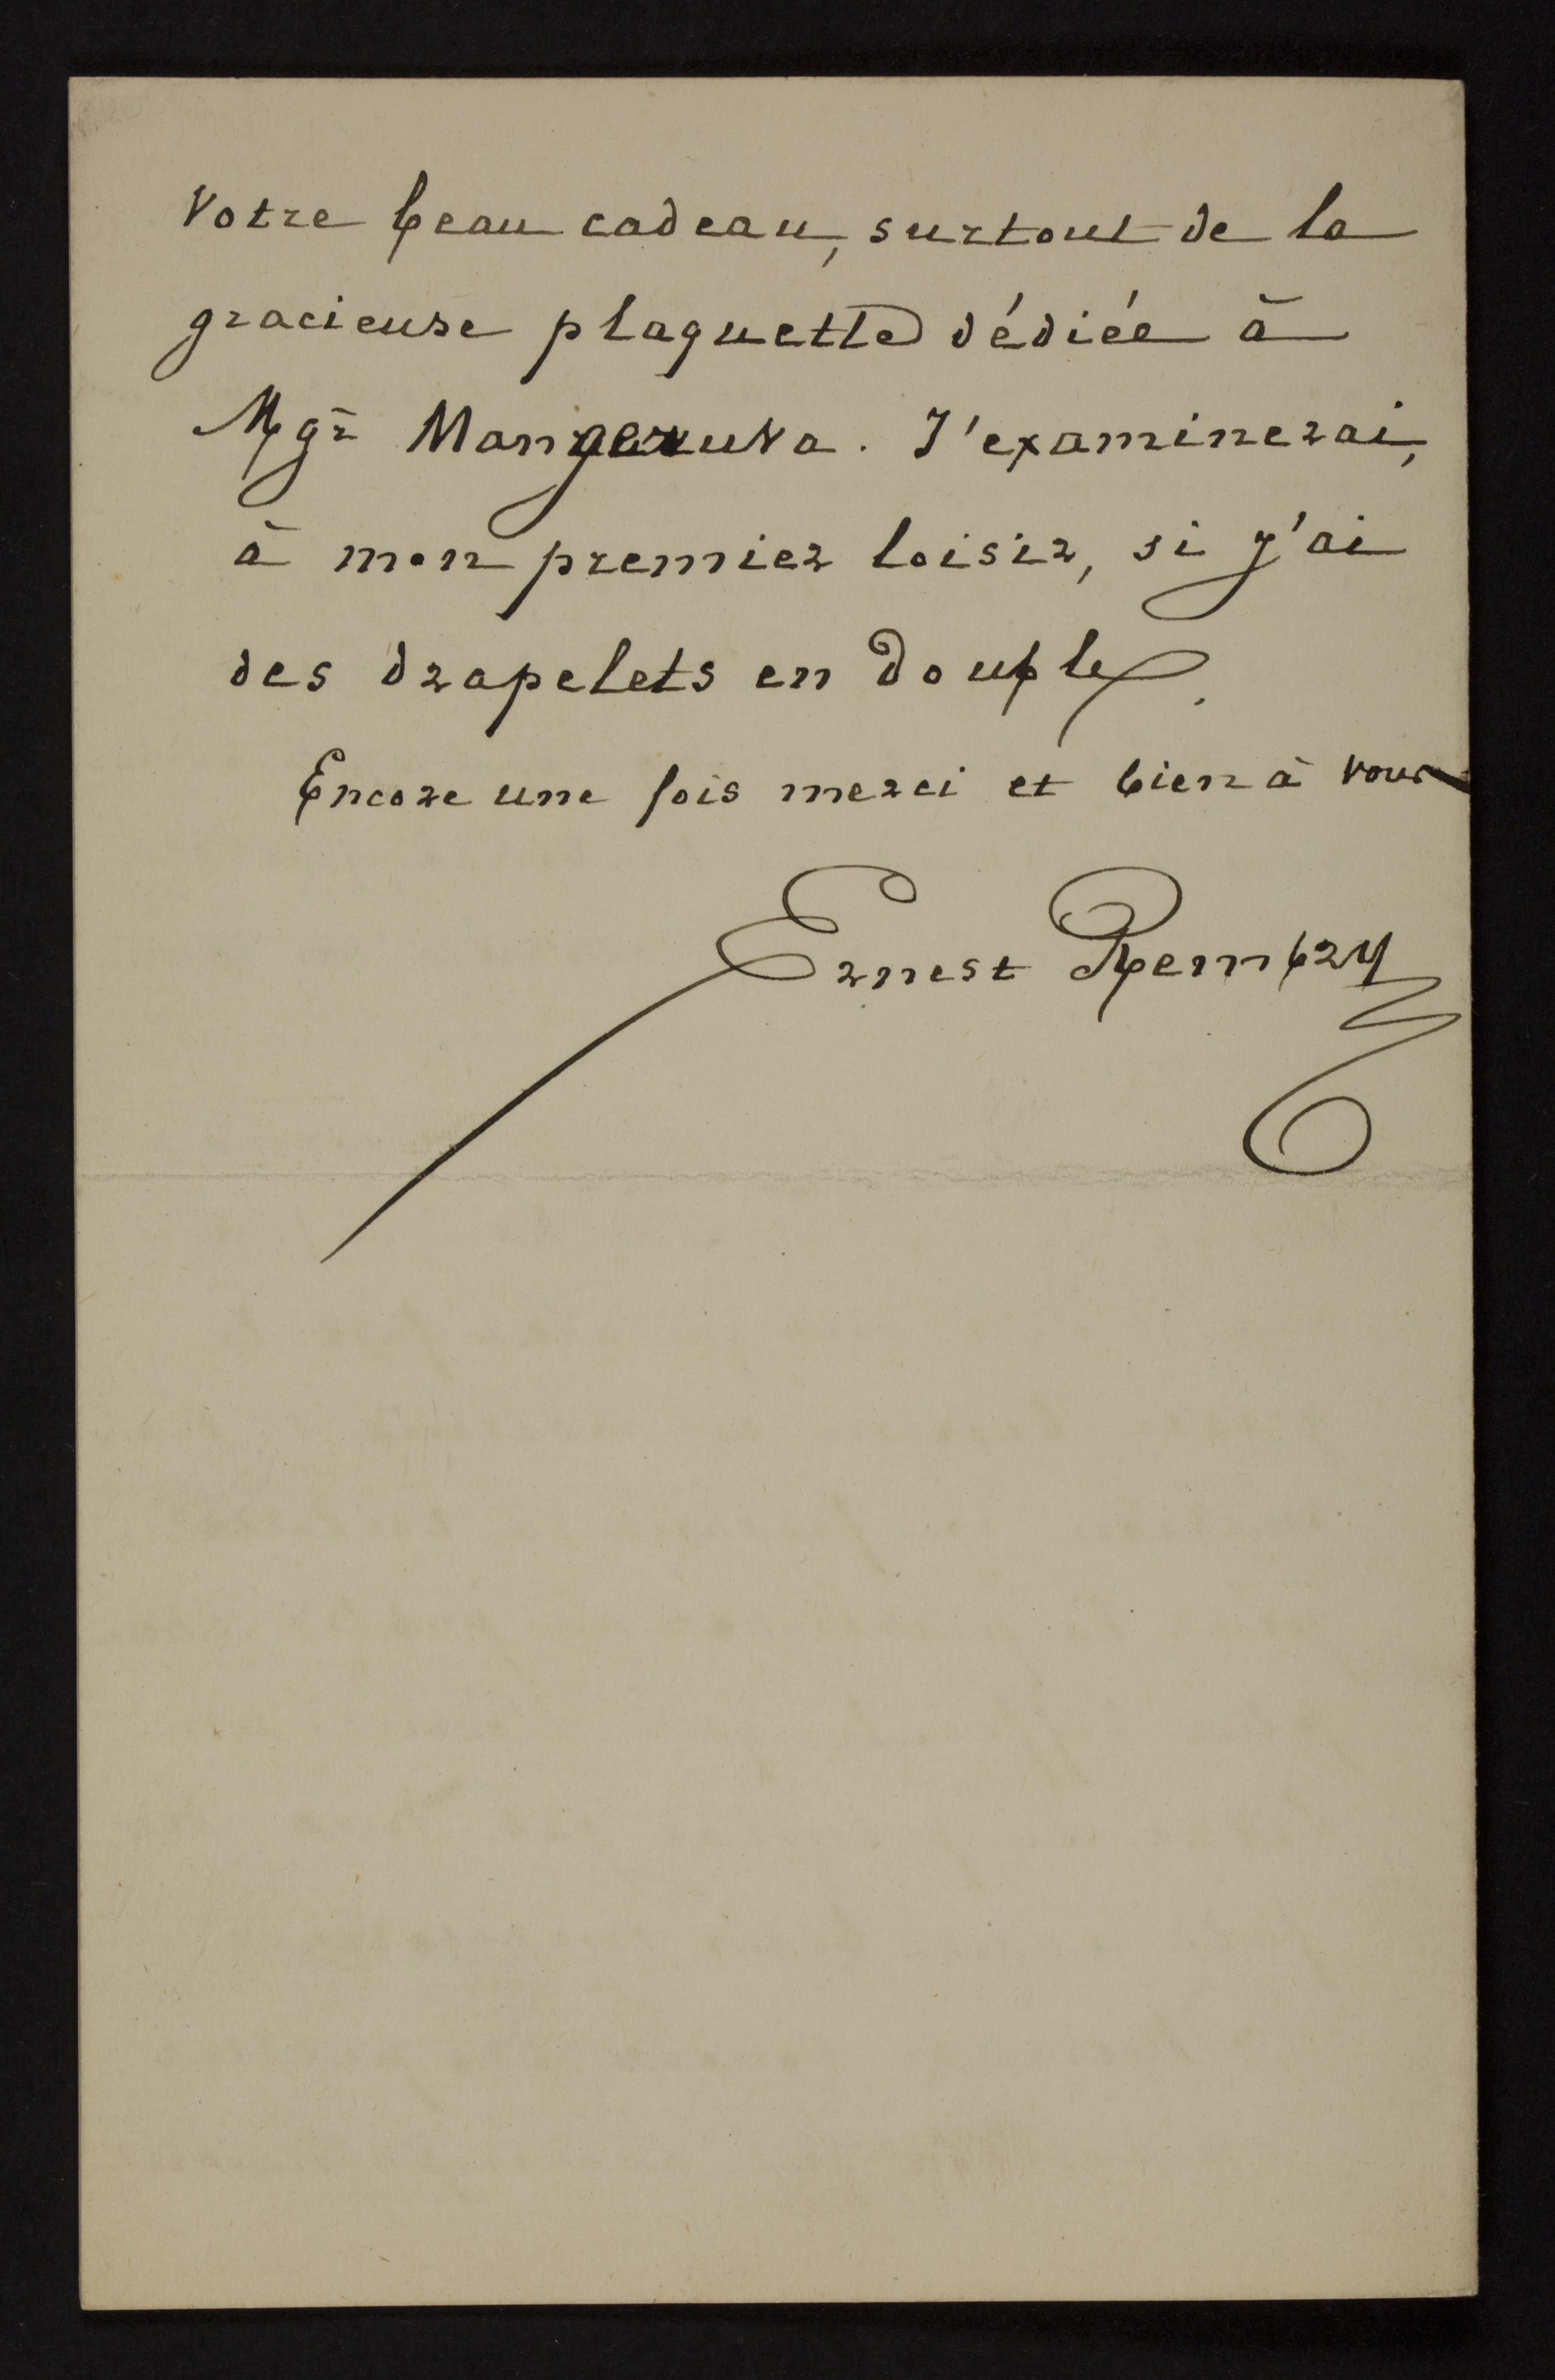 votre beau cadeau, surtout de la
gracieuse plaquette dédiée à
Mgr Mangeruva. J'examinerai,
à mon premier loisir, si j'ai
des drapelets en double.
Encore une fois merci et bien à vous
Ernest Rembry